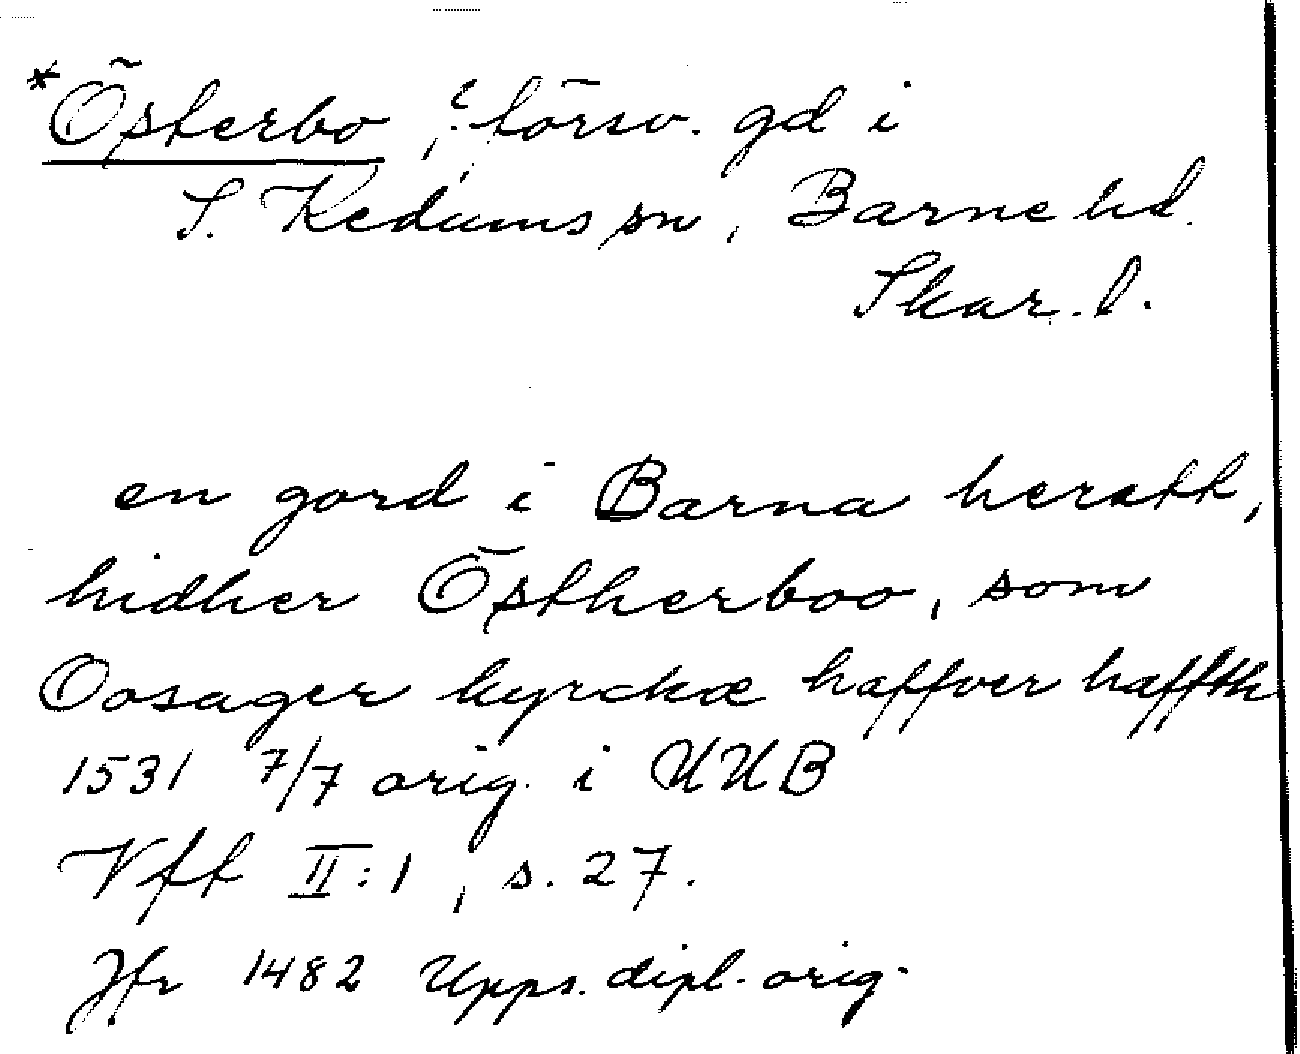 *Österbo, ? försv. gd i
S. Kedums sn, Barne hd.
Skar. l.
en gord i Barna heratt,
hidher Östherboo, som
Oosager kyrckæ haffver haffth
1531 7/7 orig. i UUB
Vft II:1, s. 27.
Jfr 1482 Upps. dipl. orig.